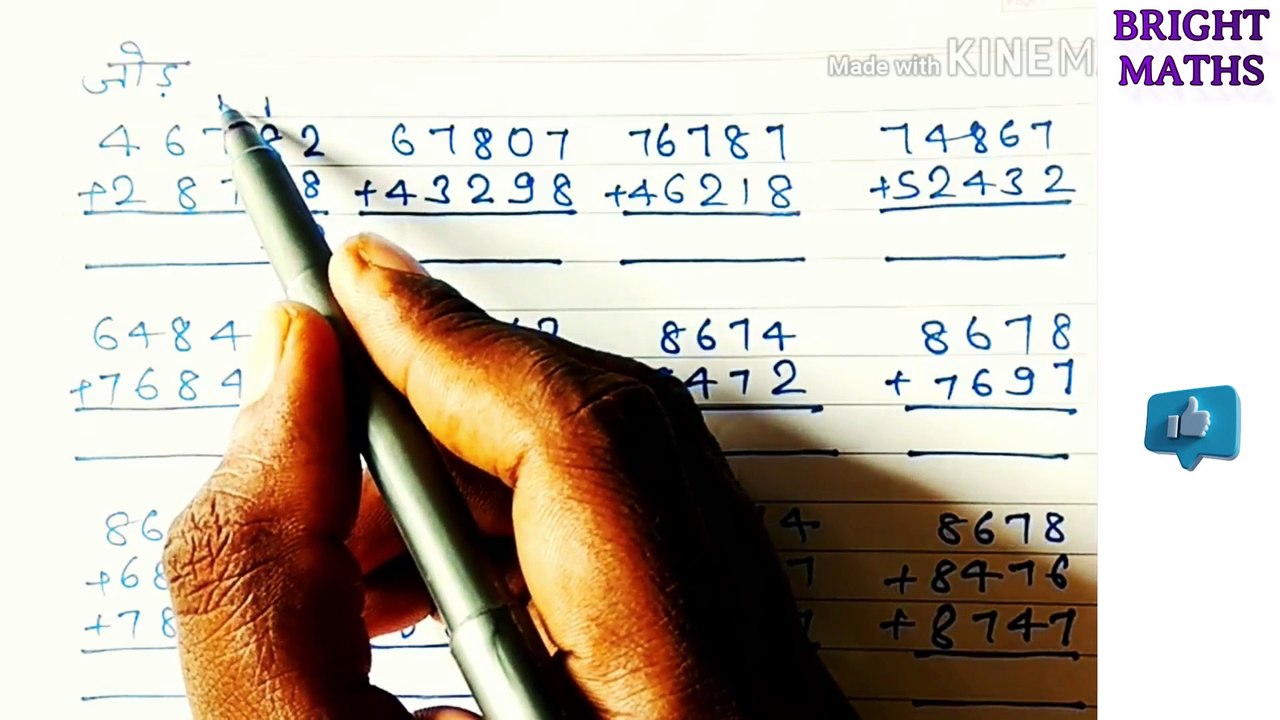 BRIGHT
MATHS
Made with KINEM
जोड़
1 1
4 6 7 2 67807 76787 74867
+2 8 7 8 +43298 +46218 +52432
6484 8674 8678
+7684 472 + 7697
86 4 8678
+68 7 +8476
+78 +8747